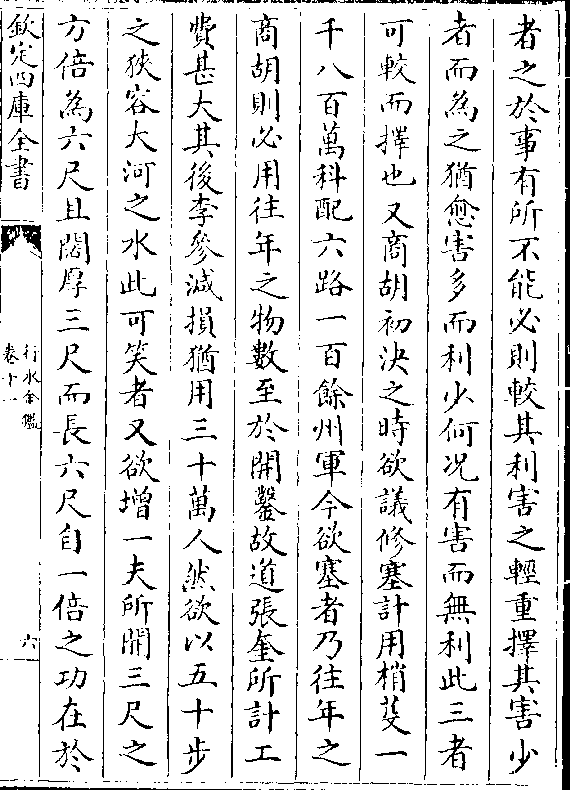 者之於事有所不能必則較其利害之輕重擇其害少
者而為之猶愈害多而利少何况有害而無利此三者
可較而擇也又商胡初決之時欲議修塞計用梢芟一
千八百萬科配六路一百餘州軍今欲塞者乃往年之
商胡則必用往年之物數至於開鑿故道張奎所計工
費甚大其後李參減損猶用三十萬人然欲以五十步
之狹容大河之水此可笑者又欲增一夫所開三尺之
方倍為六尺且闊厚三尺而長六尺自一倍之功在於
欽定四庫全書
行水金鑑
卷十一
六